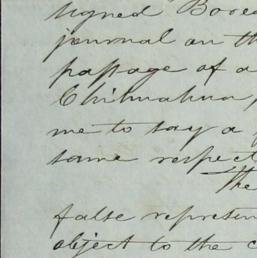 signed "Borea
journal on th
passage of a
Chihuahua,
me to say a
same respect
The
false represen
object to the c